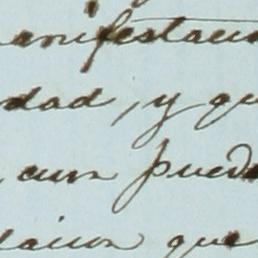 anifestacio
dad, y qu
aun puede
lacion que